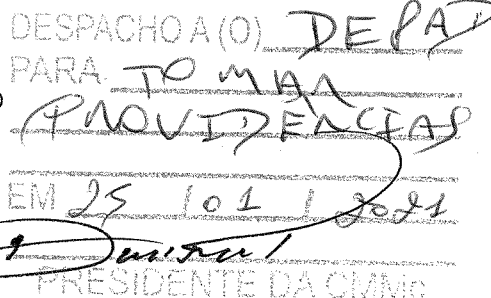 DESPACHO A (O) DEPAD
PARA TOMAR
PROVIDENCIAS
EM 25 / 01 / 2021
PRESIDENTE DA